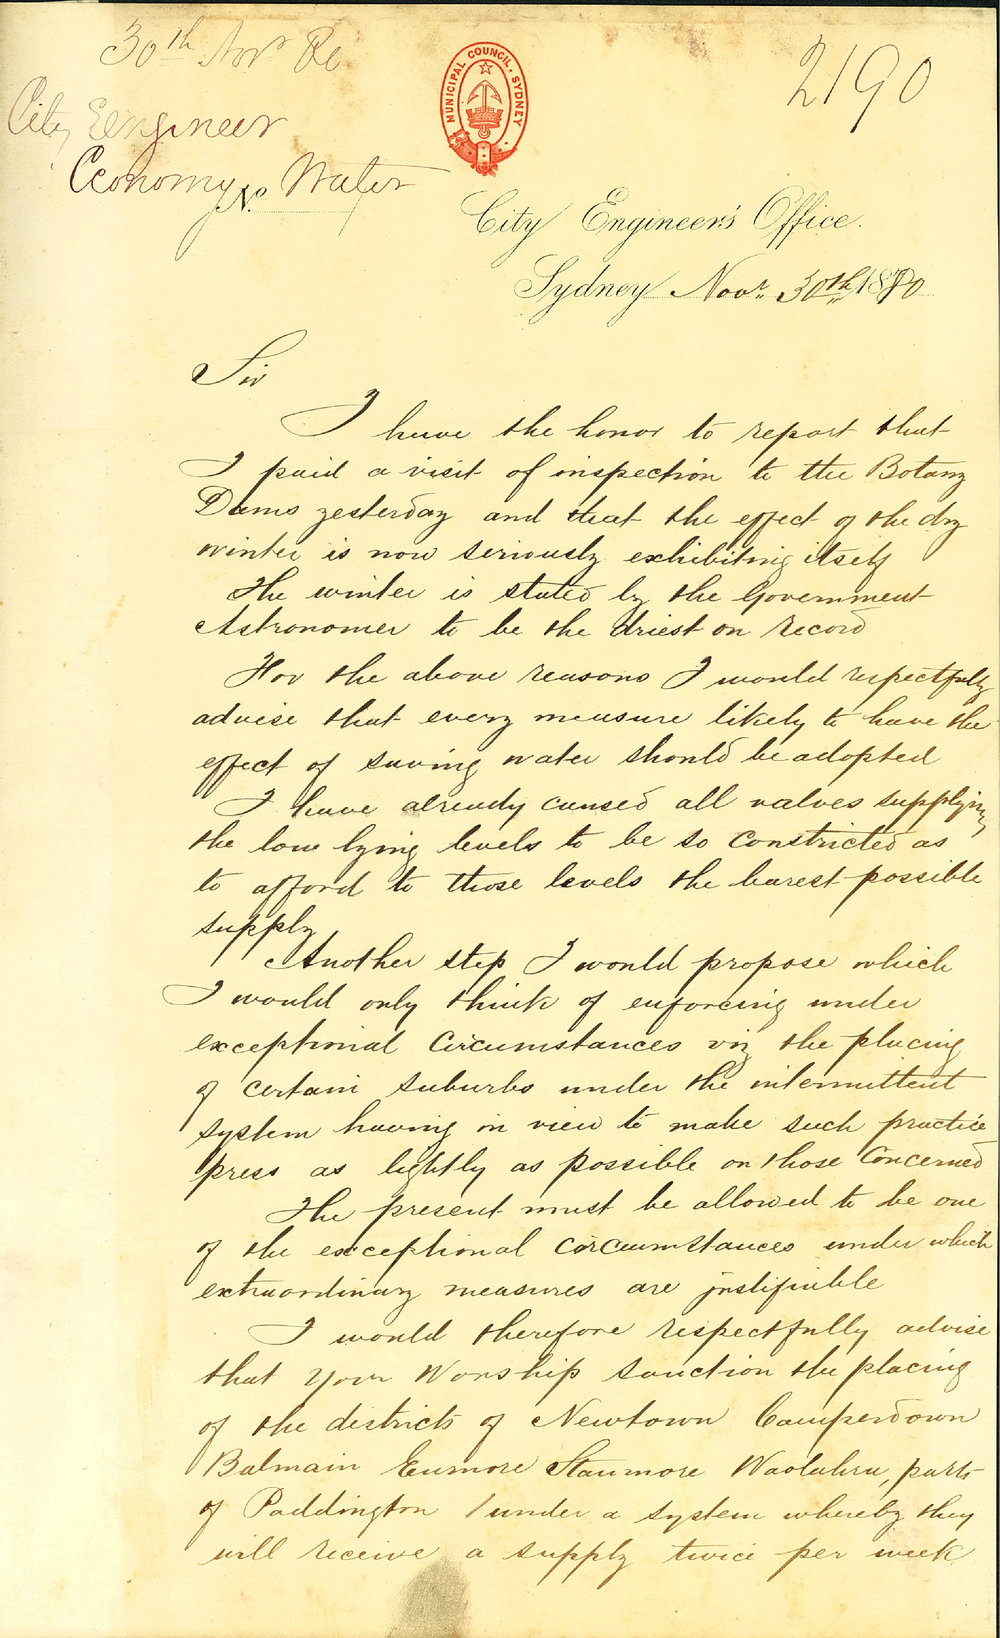 30th Nov. Re
City Engineer
Economy Water
2190
MUNICIPAL COUNCIL, SYDNEY
No.
City Engineer's Office.
Sydney Novr. 30th 1880
Sir
I have the honor to report that
I paid a visit of inspection to the Botany
Dams yesterday and that the effect of the dry
winter is now seriously exhibiting itself
The winter is stated by the Government
Astronomer to be the driest on record
For the above reasons I would respectfully
advise that every measure likely to have the
effect of saving water should be adopted
I have already caused all valves supplying
the low lying levels to be so constricted as
to afford to those levels the barest possible
supply
Another step I would propose which
I would only think of enforcing under
exceptional circumstances viz the placing
of certain suburbs under the intermittent
system having in view to make such practice
press as lightly as possible on those concerned
The present must be allowed to be one
of the exceptional circumstances under which
extraordinary measures are justifiable
I would therefore respectfully advise
that Your Worship sanction the placing
of the districts of Newtown Camperdown
Balmain Enmore Stanmore Woolahra, parts
of Paddington / under a system whereby they
will receive a supply twice per week